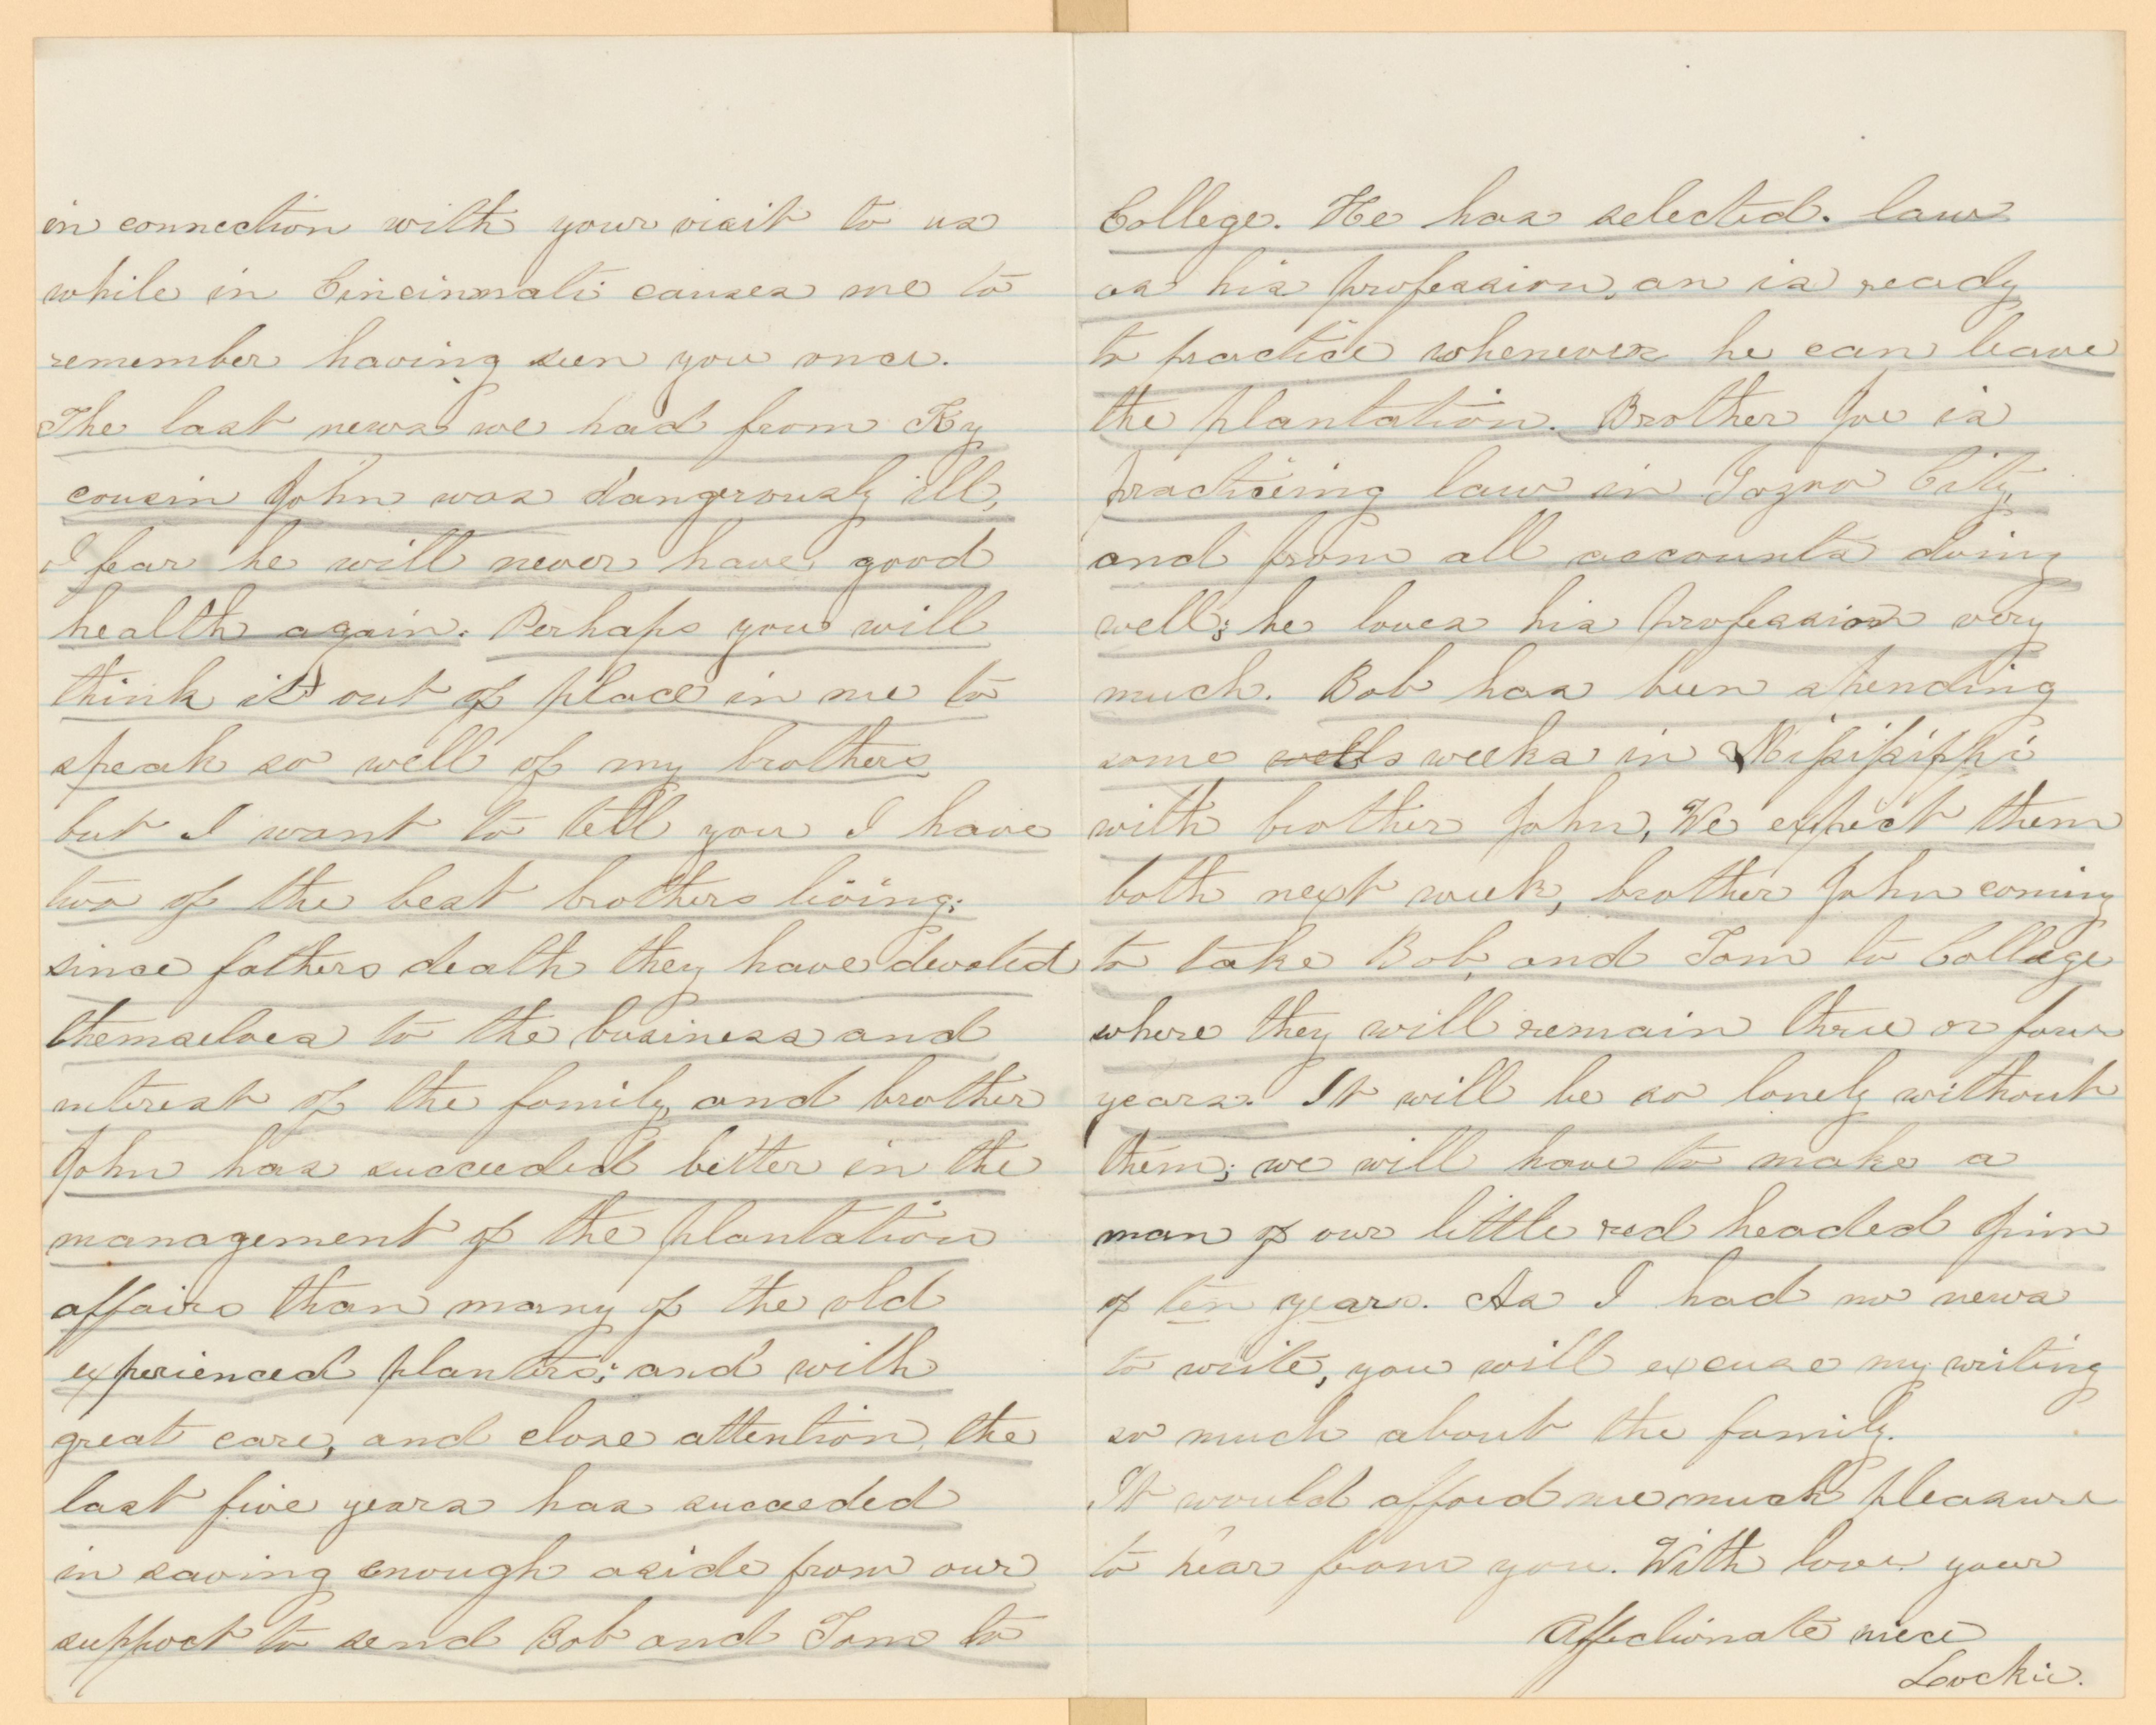 in connection with your visit to us
while in Cincinnati causes me to
remember having seen you once.
The last news we had from Ky
cousin John was dangerously ill,
I fear he will never have good
health again. Perhaps you will
think it out of place in me to
speak so well of my brothers
but I want to tell you I have
two of the best brothers living;
since fathers death they have devoted
themselves to the business and
interest of the family, and brother
John has succeeded better in the
management of the plantation
affairs than many of the old
experienced planters; and with
great care, and close attention, the
last five years has succeeded
in saving enough aside from our
support to send Bob and Tom to
College. He has selected. law
as his profession, an is ready
to practice whenever he can leave
the plantation. Brother Joe is
practicing law in Yazoo City,
and from all accounts doing
well; he loves his profession very
much. Bob has been spending
some wells weeks in Mississippi
with brother John, We expect them
both next week, brother John coming
to take Bob, and Tom to College
where they will remain three or four
years. It will be so lonely without
them; we will have to make a
man of our little red headed Jim
of ten years. As I had no news
to write, you will excuse my writing
so much about the family.
It would afford me much pleasure
to hear from you. With love your
Affectionate niece
Lockie.